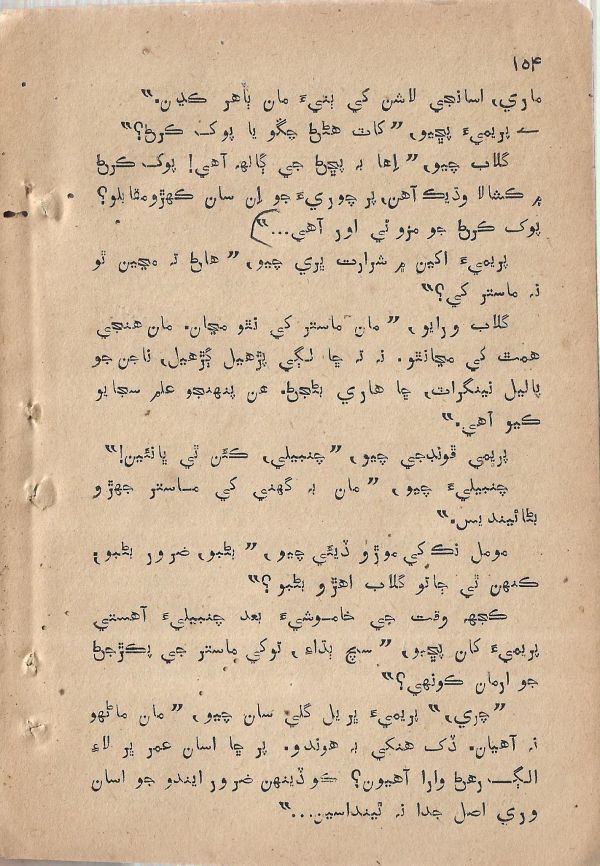 ۱۵۴
ماري، اسانجي لاشن کي ٻنيءَ مان ٻاهر ڪڍن.“
— پريميءَ پڇيو، ”کاٽ هڻڻ چڱو يا پوک ڪرڻ؟“
گلاب چيو، ”اِها به پڇڻ جي ڳالهه آهي! پوک ڪرڻ
۾ ڪشالا وڌيڪ آهن، پر چوريءَ جو اِن سان ڪهڙو مقابلو؟
پوک ڪرڻ جو مزو ئي اور آهي...“
پريميءَ اکين ۾ شرارت ڀري چيو، ”هاڻ ته مڃين ٿو
نه ماستر کي؟“
گلاب ورايو، ”مان ماستر کي نٿو مڃان. مان هنجي
همٿ کي مڃانٿو. نه ته ڇا لڳي پڙهيل ڳڙهيل، نازن جو
پاليل نينگرات، ڇا هاري بڻجڻ. هن پنهنجو علم سجايو
ڪيو آهي.“
پريمي ڦونڊجي چيو، ”چنبيلي، ڪئن ٿي ڀانئين!“
چنبيليءَ چيو، ”مان به گهني کي ماستر جهڙو
بڻائينديس.“
مومل نڪ کي موڙو ڏيئي چيو، ”بڻبو، ضرور بڻبو،
ڪنهن ٿي ڄاتو گلاب اهڙو بڻبو؟“
ڪجهه وقت جي خاموشيءَ بعد چنبيليءَ آهستي
پريميءَ کان پڇيو، ”سچ ٻڌاءِ، توکي ماستر جي پڪڙجڻ
جو ارمان ڪونهي؟“
”چري،“ پريميءَ ڀريل گلي سان چيو، ”مان ماڻهو
نه آهيان. ڏک هنکي به هوندو. پر ڇا اسان عمر ڀر لاءِ
الڳ رهڻ وارا آهيون؟ ڪو ڏينهن ضرور ايندو جو اسان
وري اصل جدا نه ٿينداسين...“